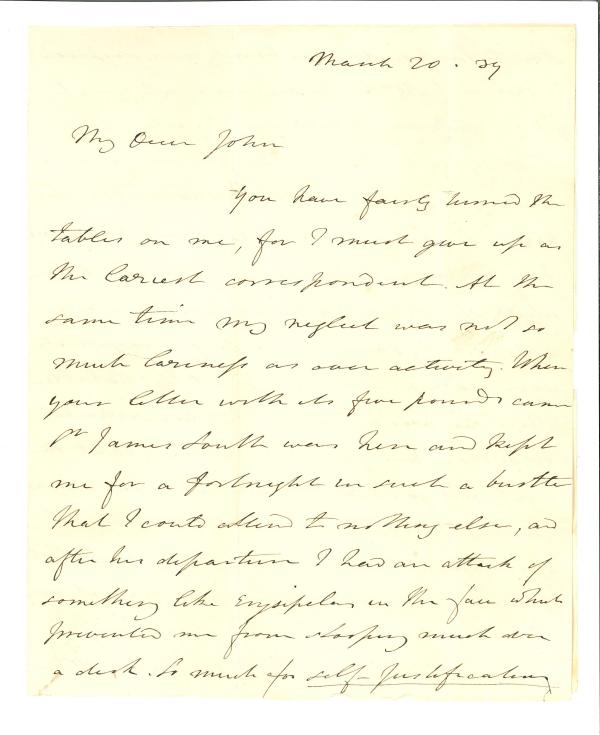 March 20. 29
My Dear John
You have fairly turned the
tables on me, for I must give up as
the laziest correspondent. At the
same time my neglect was not so
much laziness as over activity. When
your letter with its five pounds came
James South was here and kept
me for a fortnight in such a bustle
that I could attend to nothing else, and
after his departure I had an attack of
something like Erysipelas in the face which
prevented me from stooping much over
a desk. So much for self-justification